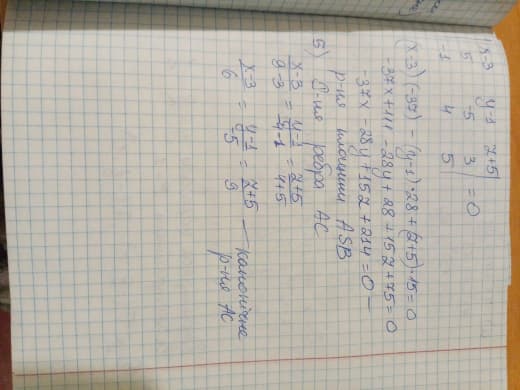 |x-3 y-1 z+5|
|5 -5 3| = 0
|-1 4 5|
(x-3)(-37) - (y-1)·28 + (z+5)·15 = 0
-37x + 111 - 28y + 28 + 15z + 75 = 0
-37x - 28y + 15z + 214 = 0 —
р-ня площини ASB
5) р-ня ребра AC
x-3/9-3 = y-1/-4-1 = z+5/4+5
x-3/6 = y-1/-5 = z+5/9 — канонічне
р-ня AC